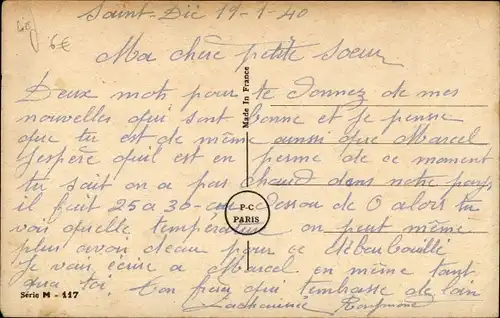 Saint-Dié 19-1-40
6€
Ma chere petite soeur
Deux mots pour te donnez de mes
nouvelles qui sont bonne et je pense
que tu est de même aussi que Marcel
J'espère qu'il est en perme de ce moment
tu sait on a pas chaud dans notre pays
il fait 25 a 30 au dessou de 0 alors tu
voi quelle température on peut même
plus avoir deau pour ce débarbouillé
Je vais écrire a Marcel en même tant
qua toi. Ton frère qui t'embrasse de loin
Made In France
P-C
PARIS
Série M - 117